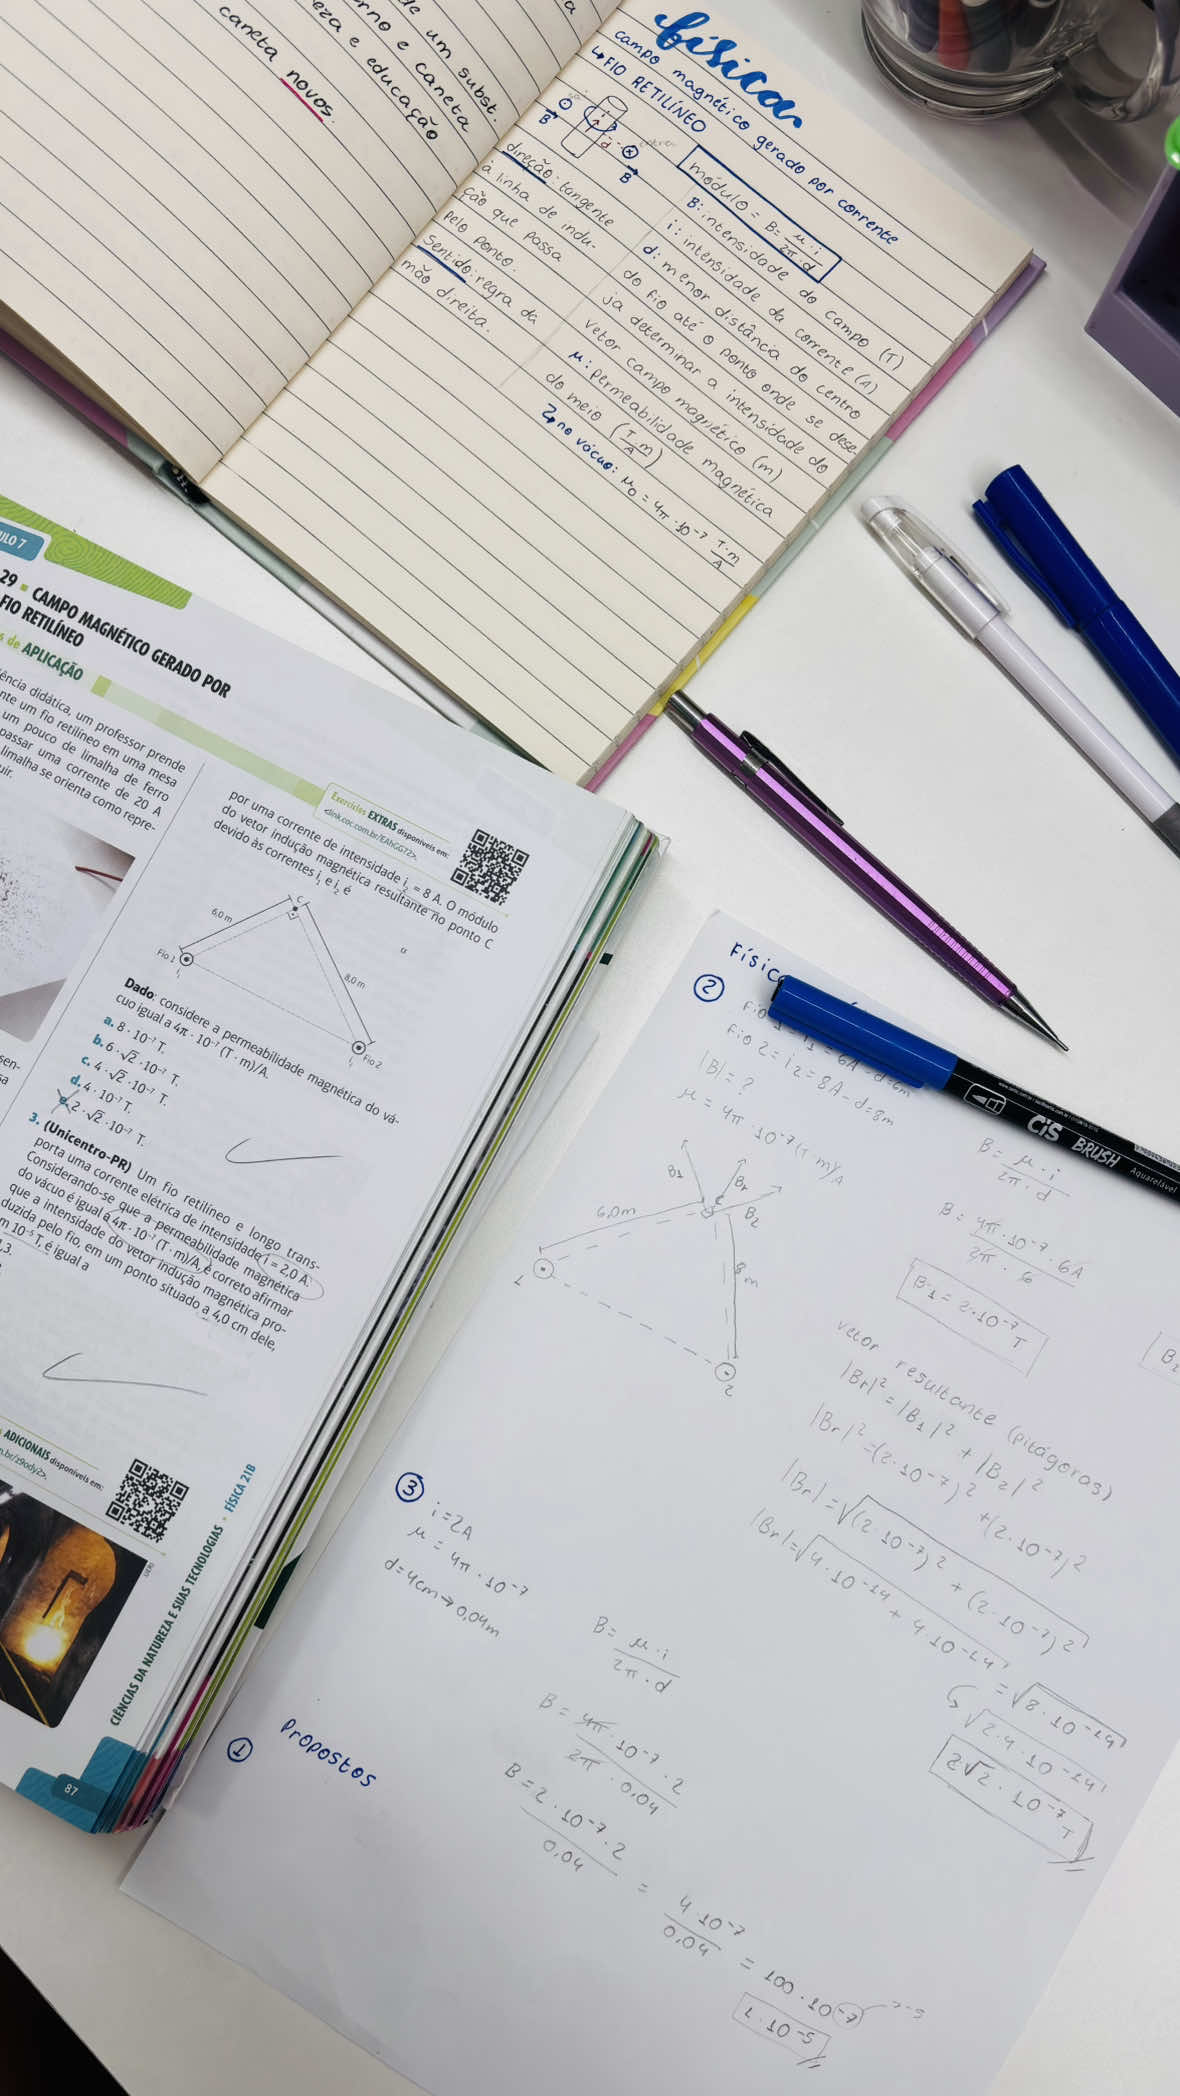 de um subst.
rno e caneta
eza e educação
caneta novos.
física
campo magnético gerado por corrente
↳ FIO RETILÍNEO
B
i
d
B
direção: tangente
à linha de indu-
ção que passa
pelo ponto.
Sentido: regra da
mão direita.
módulo = B = μ·i / 2π·d
B: intensidade do campo (T)
i: intensidade da corrente (A)
d: menor distância do centro
do fio até o ponto onde se dese
ja determinar a intensidade do
vetor campo magnético (m)
μ: permeabilidade magnética
do meio (T·m/A)
↳ no vácuo: μ0 = 4π·10⁻⁷ T·m/A
ULO 7
29 CAMPO MAGNÉTICO GERADO POR
FIO RETILÍNEO
s de APLICAÇÃO
ência didática, um professor prende
nte um fio retilíneo em uma mesa
um pouco de limalha de ferro
passar uma corrente de 20 A
limalha se orienta como repre-
uir.
sen-
sa
Exercícios EXTRAS disponíveis em:
<link.coc.com.br/EAhGG72>.
por uma corrente de intensidade i₂ = 8 A. O módulo
do vetor indução magnética resultante no ponto C
devido às correntes i₁ e i₂ é
C
6,0 m
8,0 m
Fio 1
i₁
Fio 2
Dado: considere a permeabilidade magnética do vá-
cuo igual a 4π · 10⁻⁷ (T · m)/A.
a. 8 · 10⁻⁷ T.
b. 6 · √2 · 10⁻⁷ T.
c. 4 · √2 · 10⁻⁷ T.
d. 4 · 10⁻⁷ T.
2 · √2 · 10⁻⁷ T.
3. (Unicentro-PR) Um fio retilíneo e longo trans-
porta uma corrente elétrica de intensidade i = 2,0 A.
Considerando-se que a permeabilidade magnética
do vácuo é igual a 4π · 10⁻⁷ (T · m)/A, é correto afirmar
que a intensidade do vetor indução magnética pro-
duzida pelo fio, em um ponto situado a 4,0 cm dele,
m 10⁻⁵ T, é igual a
1,3.
ADICIONAIS disponíveis em:
n.br/z9ody2>.
CIÊNCIAS DA NATUREZA E SUAS TECNOLOGIAS FÍSICA 21B
87
CIS BRUSH
Aquarelável
Físic
②
= 6A - d=6m
Fio 2 = i2 = 8A - d=8m
|B| = ?
μ = 4π · 10⁻⁷ (T·m)/A
B1
Br
C
B2
6,0m
8m
1
2
B = μ·i / 2π·d
B = 4π·10⁻⁷·6A / 2π·6
B1 = 2·10⁻⁷ T
B2
vetor resultante (pitágoras)
|Br|² = |B1|² + |B2|²
|Br|² = (2·10⁻⁷)² + (2·10⁻⁷)²
|Br| = √(2·10⁻⁷)² + (2·10⁻⁷)²
|Br| = √4·10⁻¹⁴ + 4·10⁻¹⁴ = √8·10⁻¹⁴
↳ √2·4·10⁻¹⁴
2√2·10⁻⁷ T
③
i = 2A
μ = 4π·10⁻⁷
d = 4cm → 0,04m
B = μ·i / 2π·d
B = 4π·10⁻⁷·2 / 2π·0,04
B = 2·10⁻⁷·2 / 0,04 = 4·10⁻⁷ / 0,04 = 100·10⁻⁷
1·10⁻⁵
Propostos
①